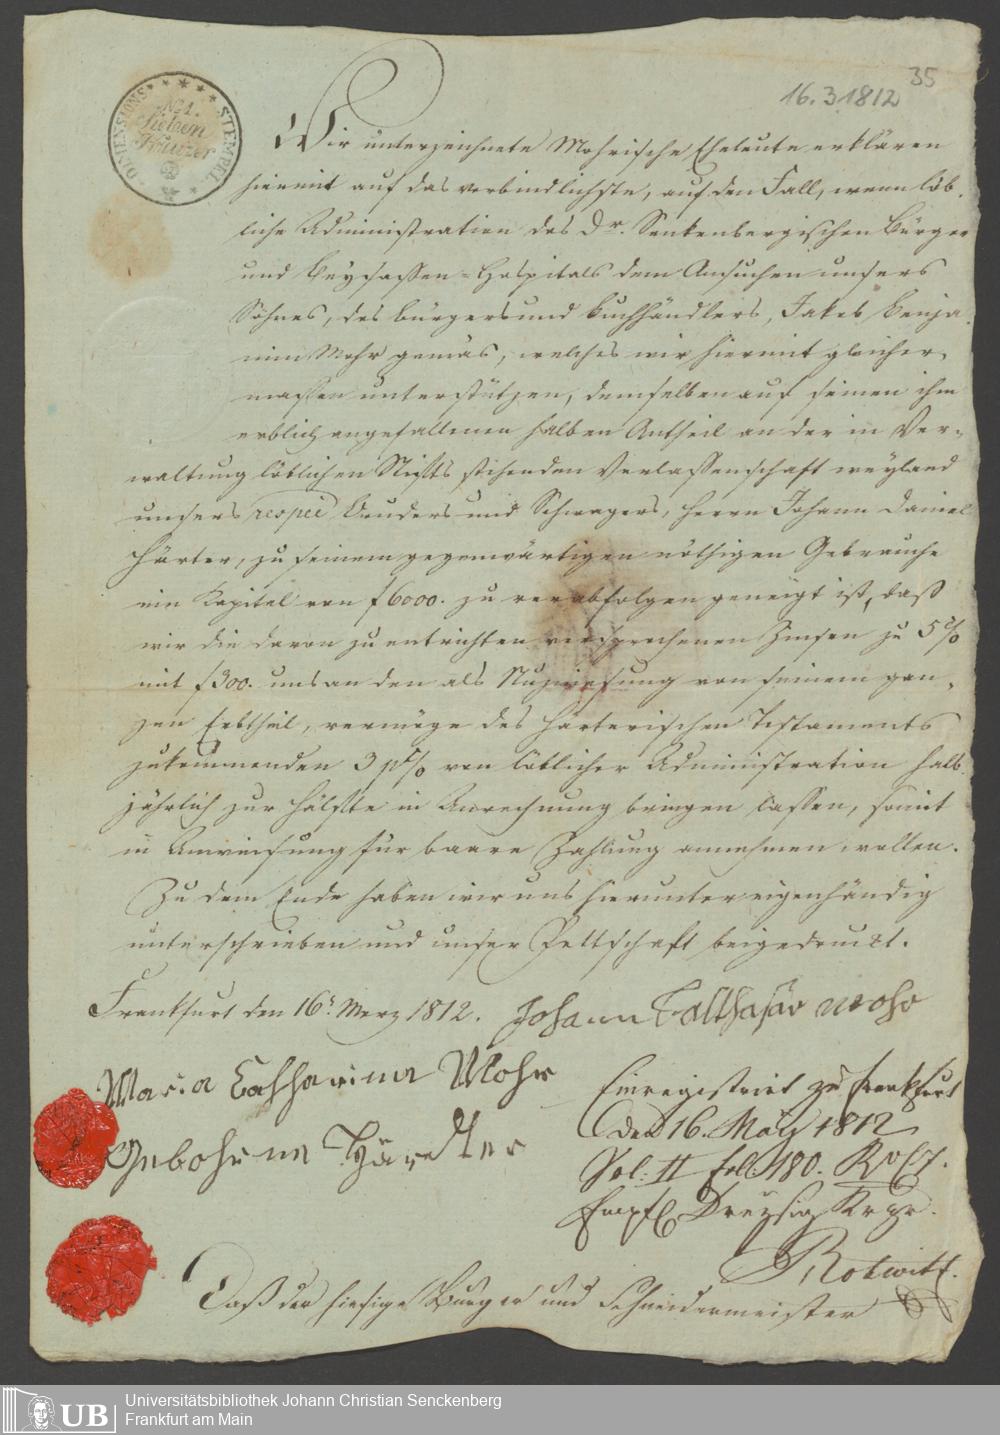 35
16.3 1812
DIMENSIONS STEMPEL
No 1.
Sieben
Kreuzer
Wir unterzeichnete Mohrische Eheleute erklären
hiermit auf das verbindlichste, auf den Fall, wenn löb-
liche Administration des Dr. Senkenbergischen Bürger
und Beysassen-Hospitals dem Ansuchen unsers
Sohnes, des Bürgers und Buchhändlers, Jakob Benja-
min Mohr gemäs, welches wir hiermit gleicher-
massen unterstützen, demselben auf seinen ihm
erblich angefallenen halben Antheil an der in Ver-
waltung löblichen Stifts stehenden Verlassenschaft weyland
unsers respeč Bruders und Schwagers, Herrn Johann Daniel
Härter, zu seinem gegenwärtigen nöthigen Gebrauche
ein Kapital von f 6000. zu verabfolgen geneigt ist, daß
wir die davon zu entrichten versprochenen Zinsen zu 5 %
mit f 300. uns an den als Nuzniesung von seinem gan-
zen Erbtheil, vermöge des Härterischen Testaments
zukommenden 3 p% von löblicher Administration halb-
jährlich zur Hälfte in Anrechnung bringen lassen, somit
in Anweisung für baare Zahlung annehmen wollen.
Zu dem Ende haben wir uns hierunter eigenhändig
unterschrieben und unser Pettschaft beigedruckt.
Frankfurt den 16t Merz 1812. Johann Balthasar Mohr
Maria Catharina Mohr
Gebohrne Härdter
Einregistrirt zu Frankfurt
den 16. März 1812
Vol. II fol. 180. Ro C7.
Empf. Dreyßig Krzr.
Rotwitt.
Daß der hiesige Bürger und Schneidermeister
UB
Universitätsbibliothek Johann Christian Senckenberg
Frankfurt am Main